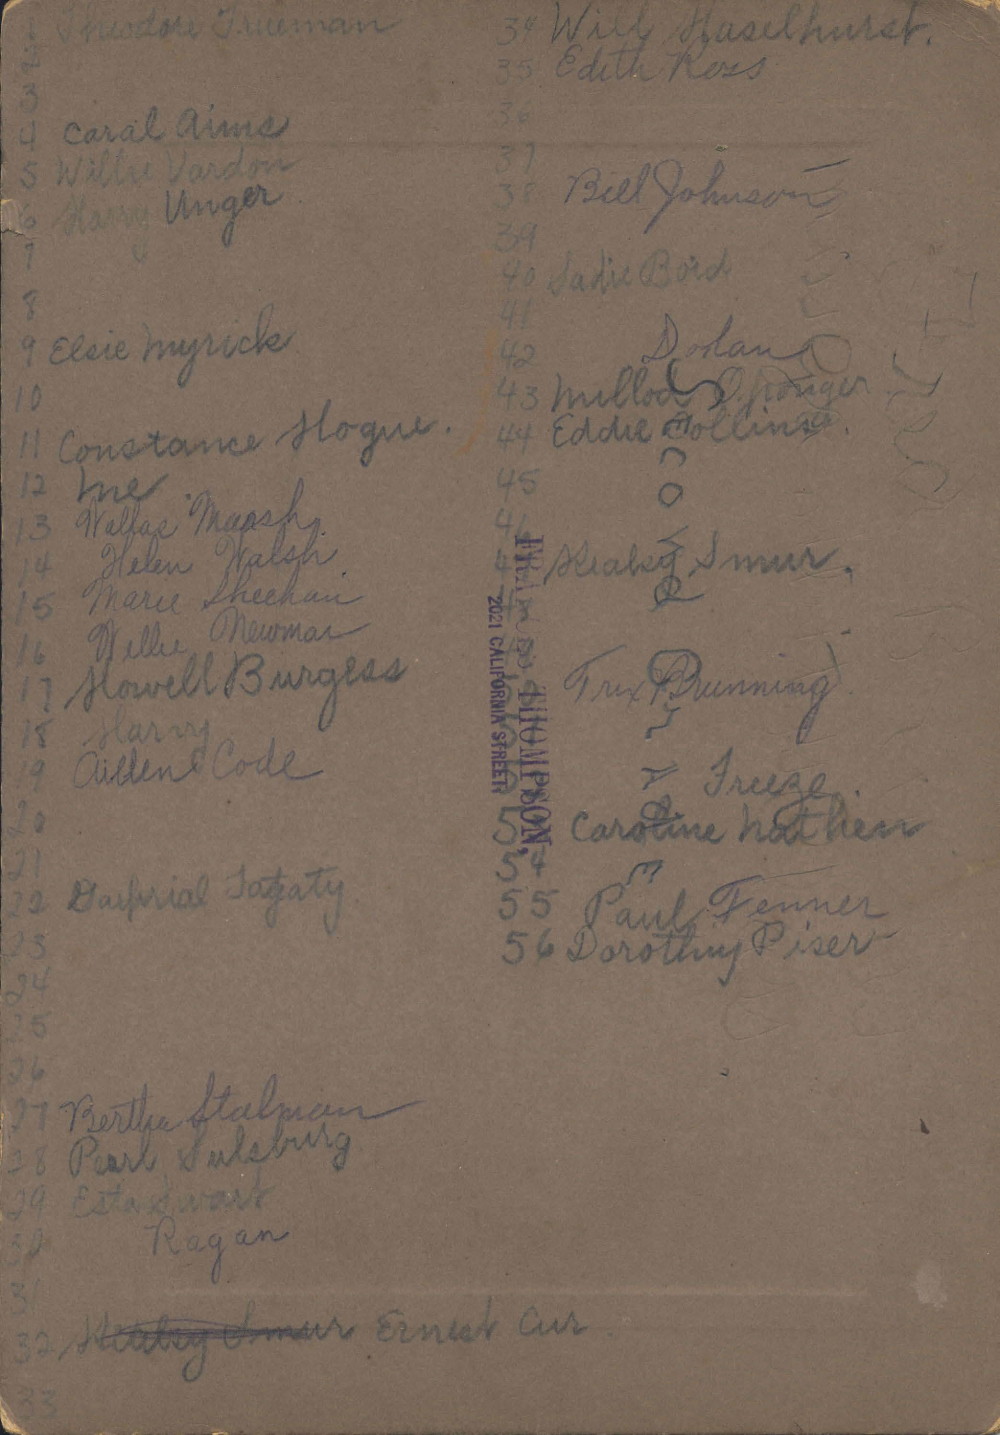 1 Theodore Trueman
2
3
4 Caral Aims
5 Willie Vardon
6 Harry Unger
7
8
9 Elsie Myrick
10
11 Constance Hogue.
12 Me
13 Wallae Marsh.
14 Helen Walsh.
15 Marie Sheehan
16 Willie Newman
17 Howell Burgess
18 Harry
19 Aileen Code
20
21
22
23
24
25
26
27 Bertha Stalman
28 Pearl Sulsburg
29 Esta Swart
30 Ragan
31
32 Kealsy Smur Ernest Cur
33
34 Will Haselhurst.
35 Edith Ross
36
37
38 Bill Johnson
39
40 Sadie Boid
41
42 Dolan
43
44 Eddie Collins.
45
46
Kealsy Smur.
Trix Brunning.
Freeze.
Caroline Nathen
54
55 Paul Fenner
56 Dorothy Piser
THOMPSON,
2021 CALIFORNIA STREET